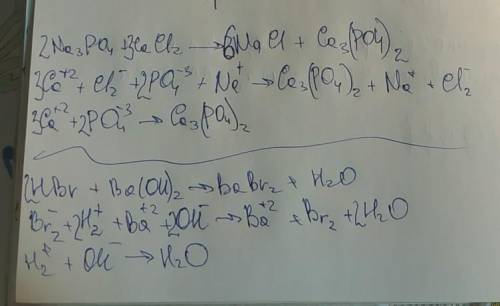 2Na3PO4 + 3CaCl2 → 6NaCl + Ca3(PO4)2
3Ca+2 + Cl2- + 2PO4-3 + Na+ → Ca3(PO4)2 + Na+ + Cl2-
3Ca+2 + 2PO4-3 → Ca3(PO4)2
2HBr + Ba(OH)2 → BaBr2 + H2O
Br2- + 2H2+ + Ba+2 + 2OH- → Ba+2 + Br2 + 2H2O
H2+ + OH- → H2O